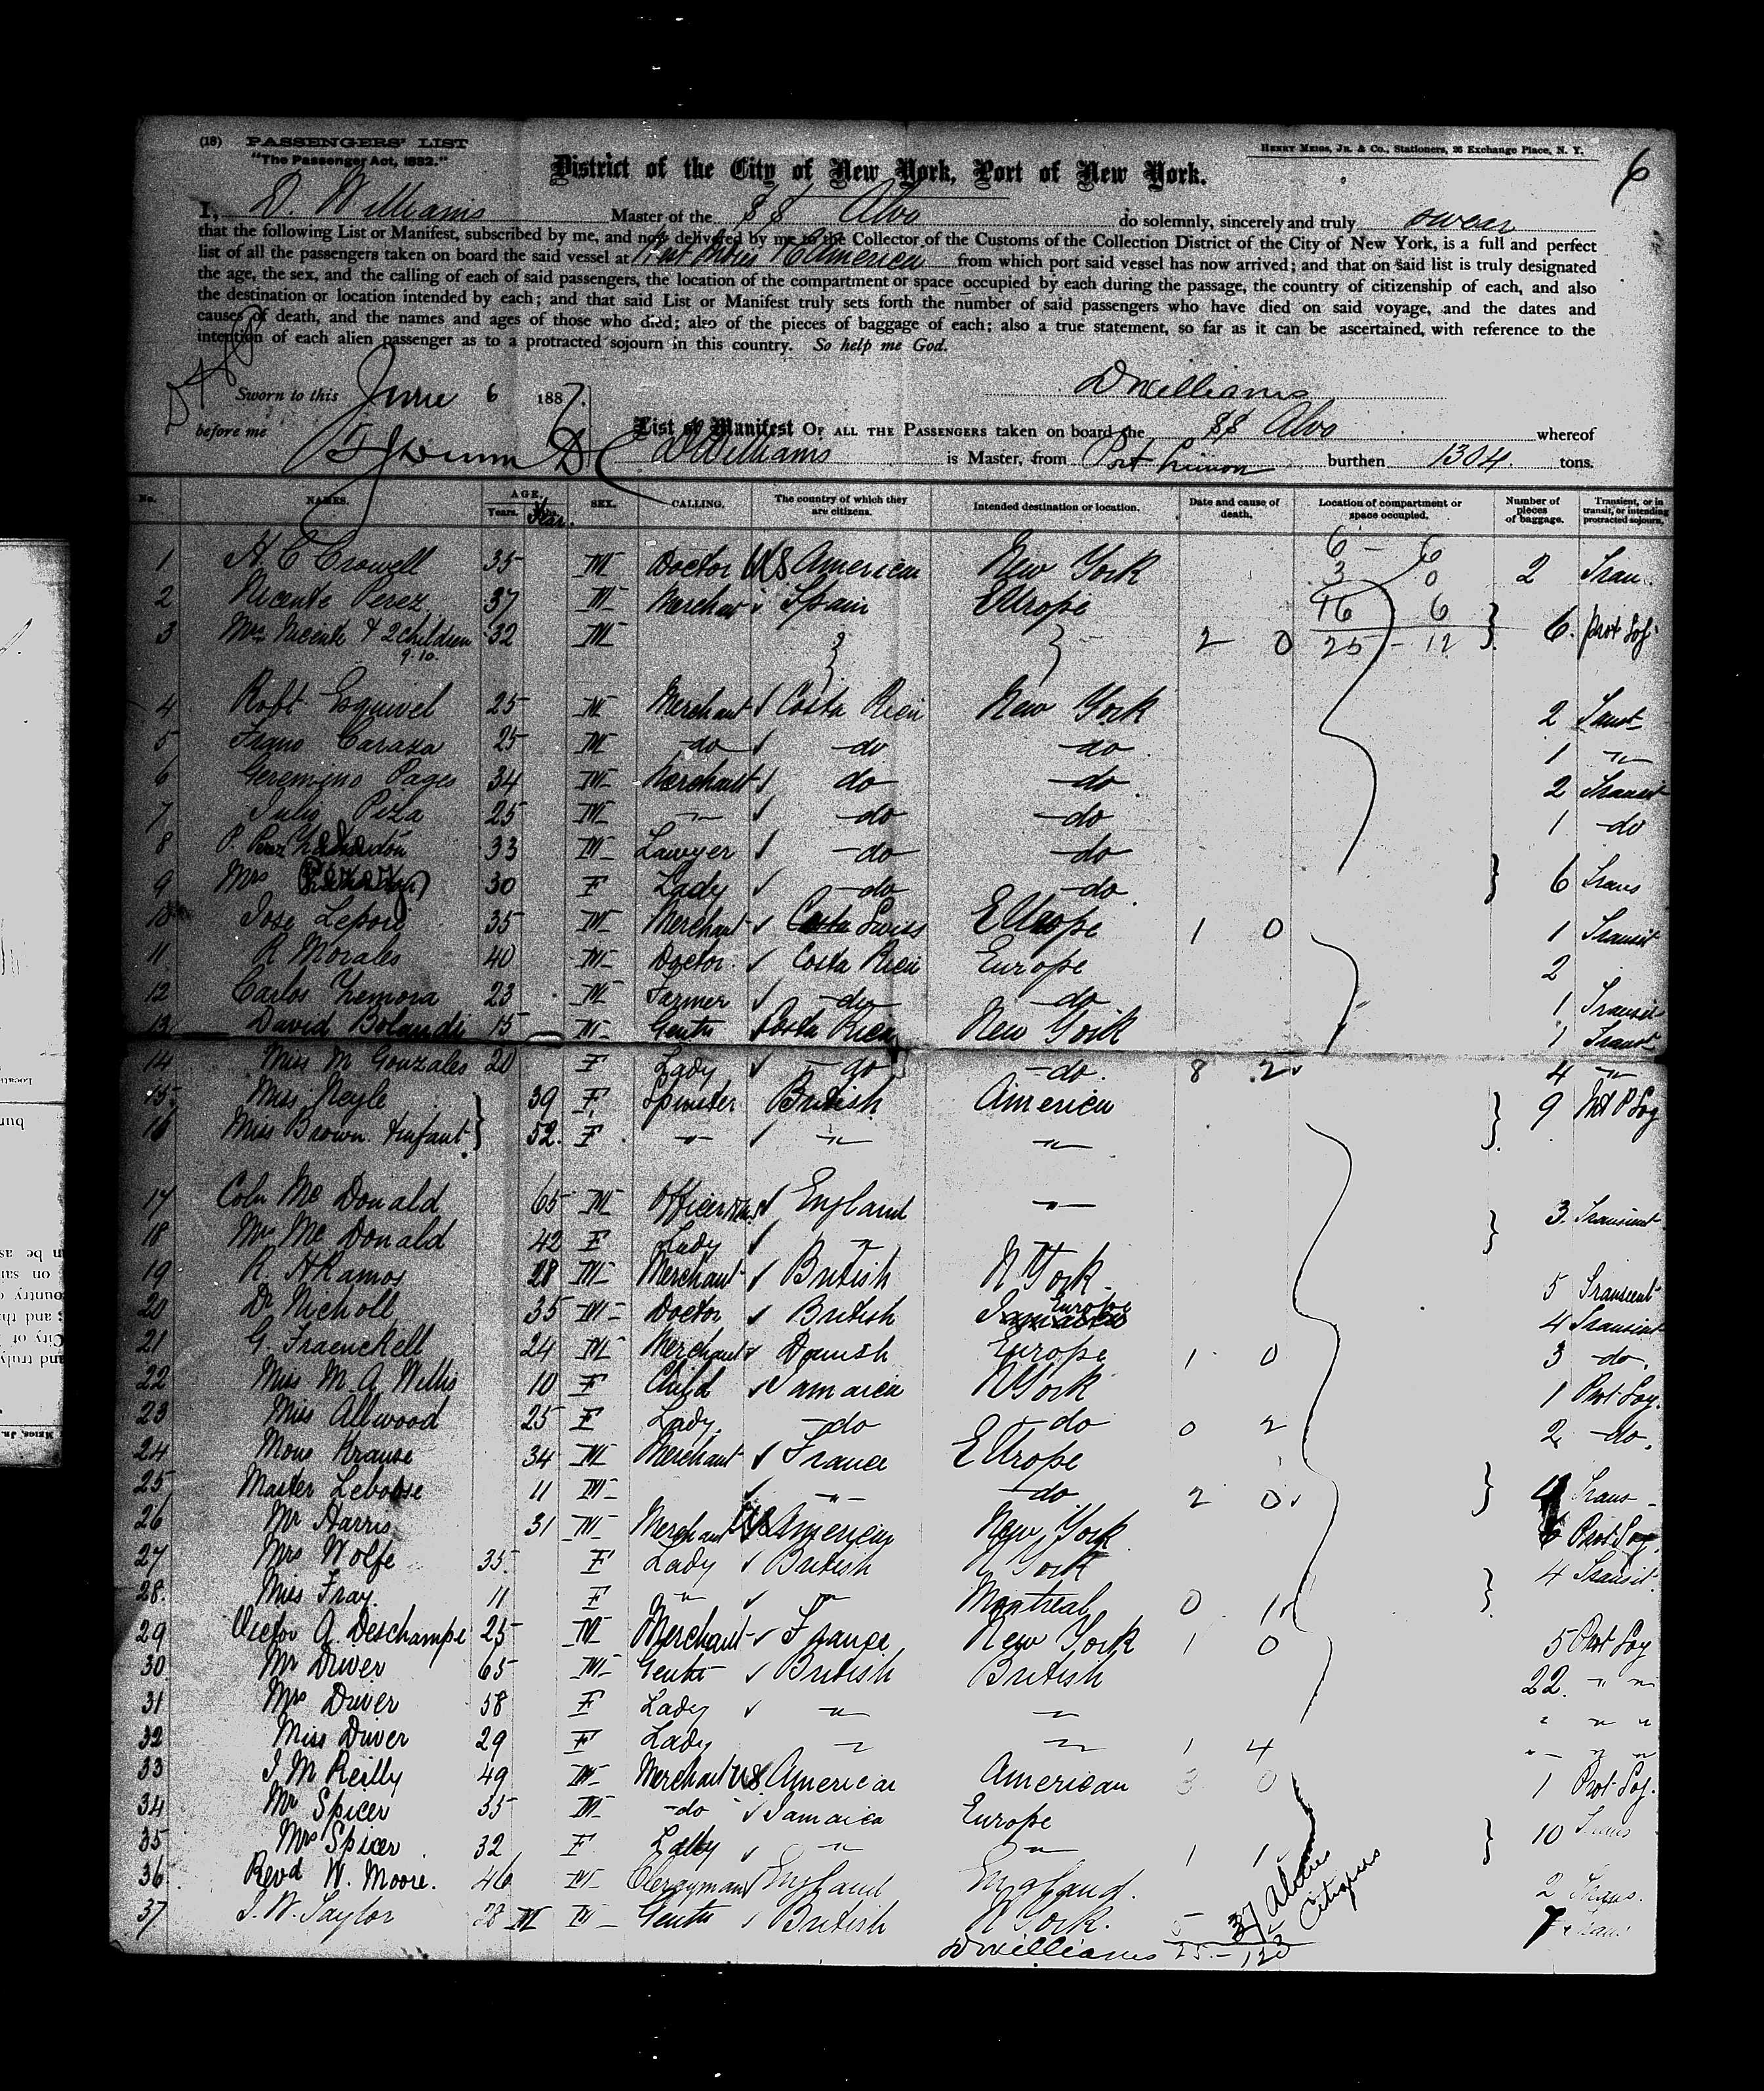 (18) PASSENGERS' LIST
"The Passenger Act, 1882."
HENRY MEIGS, JR. & CO., Stationers, 26 Exchange Place, N. Y.
6
District of the City of New York, Port of New York.
I, D. Williams Master of the SS Alvo do solemnly, sincerely and truly swear
that the following List or Manifest, subscribed by me, and now delivered by me to the Collector of the Customs of the Collection District of the City of New York, is a full and perfect
list of all the passengers taken on board the said vessel at America from which port said vessel has now arrived; and that on said list is truly designated
the age, the sex, and the calling of each of said passengers, the location of the compartment or space occupied by each during the passage, the country of citizenship of each, and also
the destination or location intended by each; and that said List or Manifest truly sets forth the number of said passengers who have died on said voyage, and the dates and
causes of death, and the names and ages of those who died; also of the pieces of baggage of each; also a true statement, so far as it can be ascertained, with reference to the
intention of each alien passenger as to a protracted sojourn in this country. So help me God.
Sworn to this June 6 1887. DWilliams
before me
List or Manifest OF ALL THE PASSENGERS taken on board the SS Alvo whereof
DWilliams is Master, from Port Limon burthen 1304. tons.
No. NAMES. AGE. Years. SEX. CALLING. The country of which they are citizens. Intended destination or location. Date and cause of death. Location of compartment or space occupied. Number of pieces of baggage. Transient, or in transit, or intending protracted sojourn.
6 - 6
3 0
16 6
25 - 12
1 H C Crowell 35 M Doctor US American New York 2 Tran
2 Vicente Perez 37 M Merchant Spain Europe
3 Mrs Vicente & 2 children 32 M 2 0 6. Prot Soj
9.10.
4 Robt Esquivel 25 M Merchant Costa Rica New York 2
5 Caraza 25 M do do do 1 "
6 Geremino Pages 34 M Merchant do do 2 Transit
7 Julio Piza 25 M " do do 1 do
8 P. Perez 33 M Lawyer do do
9 Mrs 30 F Lady do do 6 Trans
10 Jose Lepori 35 M Merchant Swiss Europe 1 0 1 Transit
11 R Morales 40 M Doctor Costa Rica Europe 2
12 Carlos 23 M Farmer do do 1 Transit
13 David Bolandi 15 M Gentn Costa Rica New York 1 Transt
14 Miss M Gonzales 20 F Lady do do 8 2 4 "
15 Miss 39 F Spinster British America 9
16 Miss Brown & infant 52. F " " "
17 Coln Mc Donald 65 M Officer England " 3. Transient
18 Mrs Mc Donald 42 F Lady "
19 R. H Ramos 28 M Merchant British N York 5 Transient
20 Dr Nicholl 35 M Doctor British Europe 4 Transient
21 G. Fraenckell 24 M Merchant Danish Europe 1 0 3 do.
22 Miss M. A. Willis 10 F Child Jamaica N York 1 Prot Soj.
23 Miss Allwood 25 F Lady do do 0 2 2 do.
24 Mons Krause 34 M Merchant France Europe
25 Master 11 M " do 2 0 Trans
26 Mr Harris 31 M Merchant US American New York 6 Prot Soj.
27 Mrs Wolfe 35. F Lady British N York 4 Transit.
28. Miss Fray. 11 F " " Montreal 0 1
29 Victor A. Deschamps 25 M Merchant France New York 1 0 5 Prot Soj
30 Mr Driver 65 M Gentn British British 22. " "
31 Mrs Driver 58 F Lady " " " " "
32 Miss Driver 29 F Lady " " 1 4 " " "
33 J M Reilly 49 M Merchant US American American 3 0 1 Prot Soj.
34 Mr Spicer 35 M do Jamaica Europe
35 Mrs Spicer 32 F Lady " " 1 1 10 Trans
36 Revd W. Moore. 46 M Clergyman England England. 2 Trans.
37 J. W. Taylor 28 M Gentn British N York. 7 Trans
37 Aliens
Citizens
DWilliams